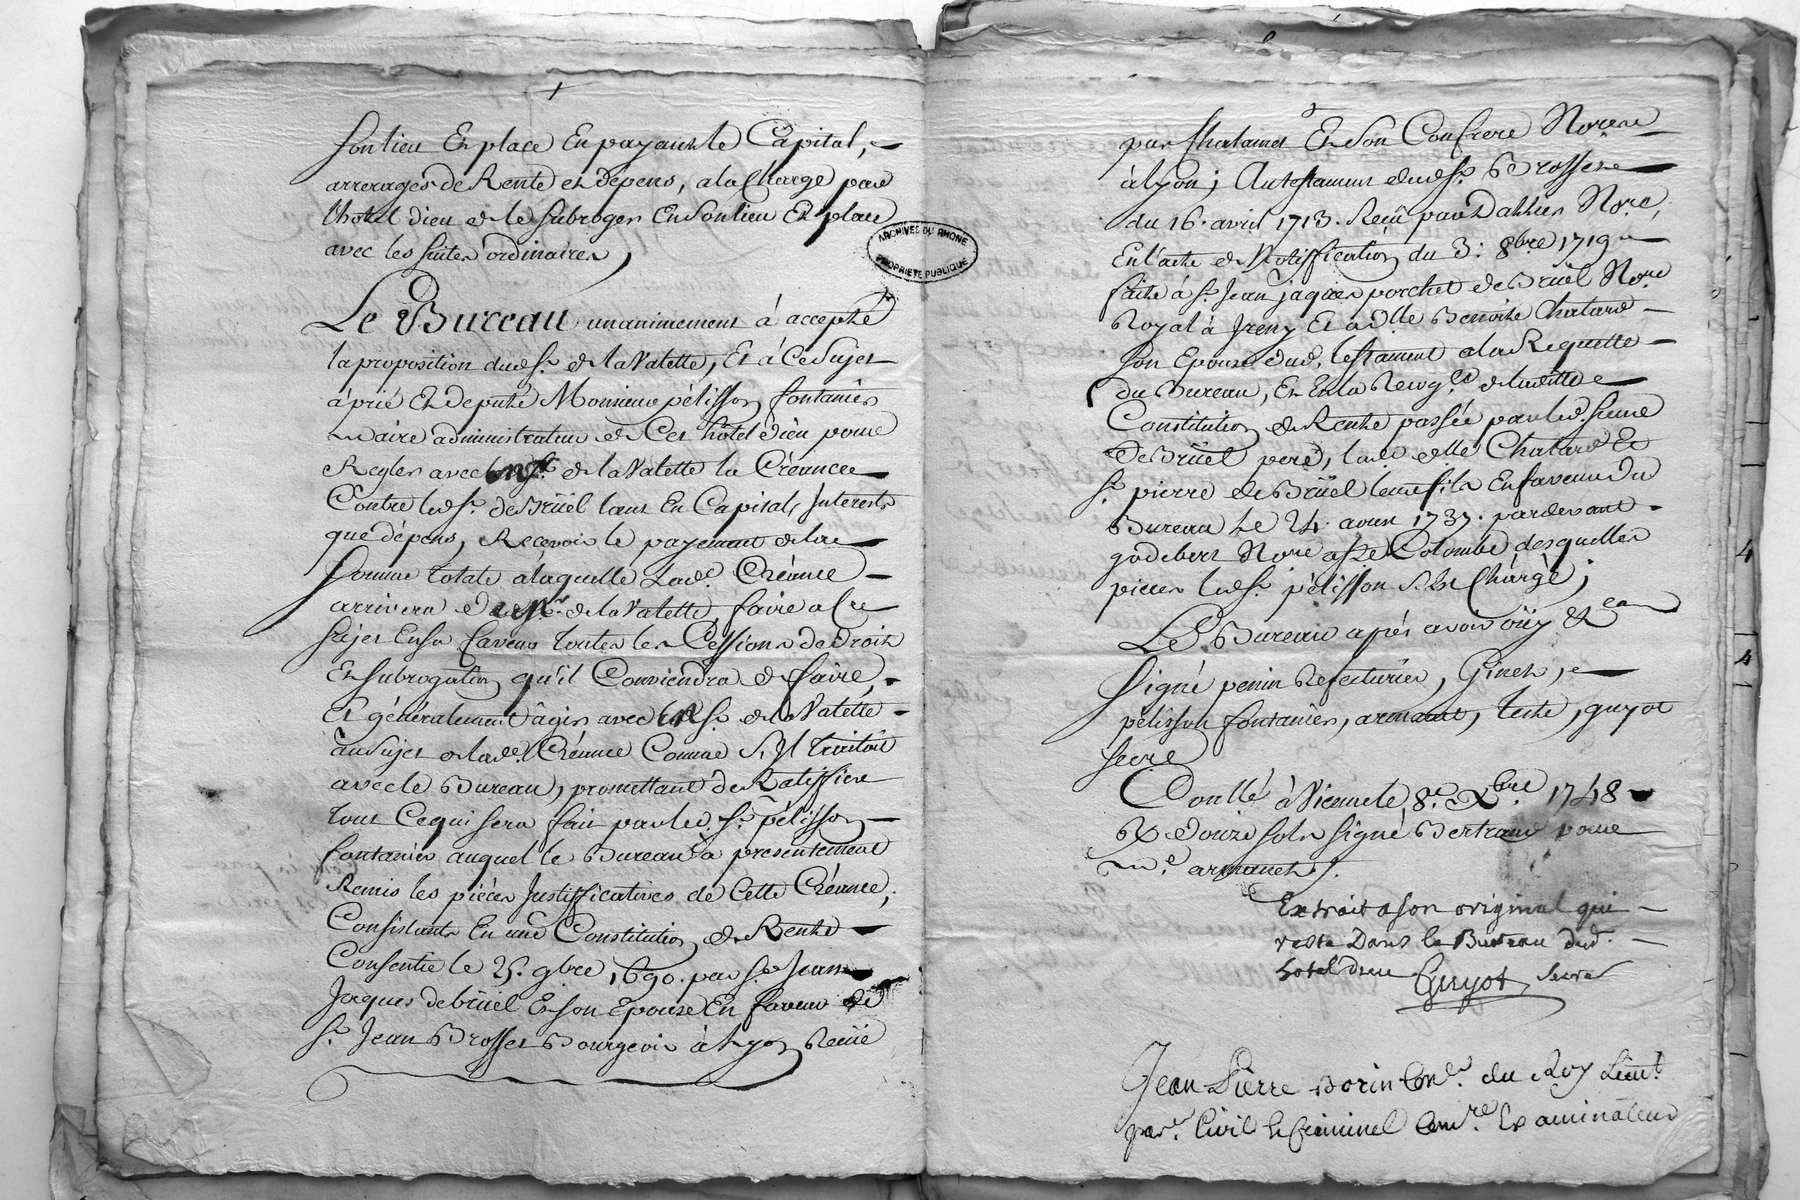 Son lieu Et place En payant le Capital,
arrerages de Rente et dépens, a la Charge par
l'hotel dieu de le subroger En son lieu Et place
avec les suites ordinaires,
Le Bureau unanimement à accepté
la proposition dud. Sr. de la Valette, Et à Ce sujet
à prié Et deputé Monsieur pélisson fontanier
administrateur de Cet hôtel dieu pour
Regler avec led Sr. de la Valette la Créance
Contre led. Sr. de Brüel tant En Capital, Interests
que dépens, Recevoir le payement de la
Somme totale a laquelle Lade. Créance
arrivera dud Sr. de la Valette, faire a Ce
sujet En sa faveur toutes les Cessions de droits
Et subrogation qu'il Conviendra de faire,
Et généralement âgir avec led Sr. de la Valette
au sujet de lade. Créance Comme S'Il traitoit
avec le Bureau, promettant de Ratiffier
tout Ce qui sera fait par led. Sr. pélisson
fontanier auquel le Bureau a presentement
Remis les piéces Justifficatives de Cette Créance,
Consistants En une Constitution de Rente
Consentie le 25. 9bre 1690. par Sr. Jean
Jacques de brüel Et son Epouse En faveur de
Sr. Jean Brosset Bourgeois à Lyon Reçüe
ARCHIVES DU RHONE
PROPRIÉTÉ PUBLIQUE
par Chatanet Et Son Confrere Nore.
à Lyon; Au testament dud. Sr. Brosset
du 16. avril 1713. Reçû par Nore,
En l'acte de Notiffication du 3. 8bre 1719
faite à Sr. Jean jaques porchet de Brüel Nore
Royal à Et a dlle Benoite Chatard
Son Epouse dud. testament a la Requette
du Bureau, Et En la de ladite
Constitution de Rente passée par led. Sieur
De Brüel pere, lade. dlle Chatard Et
Sr. pierre de Brüel leur fils En faveur du
Bureau Le 24. 1737. pardevant
godebert Nore a Ste Colombe, desquelles
pieces led. Sr. pélisson S'est Chargé;
Le Bureau aprés avoir oüy &ca
Signé penin Ginet,
pélisson fontanier, armand, teste, guyot
secre
Conllé à Vienne le 8e. Xbre 1748
Rx. douze sols signé Bertrand pour
Mr. armanet.
Extrait a son original qui
reste Dans le Bureau dud.
hotel dieu Guyot secre
Jean Pierre Borin Conler. du Roy Lieut.
parr. Civil & Criminel Comre. Examinateur
4
4